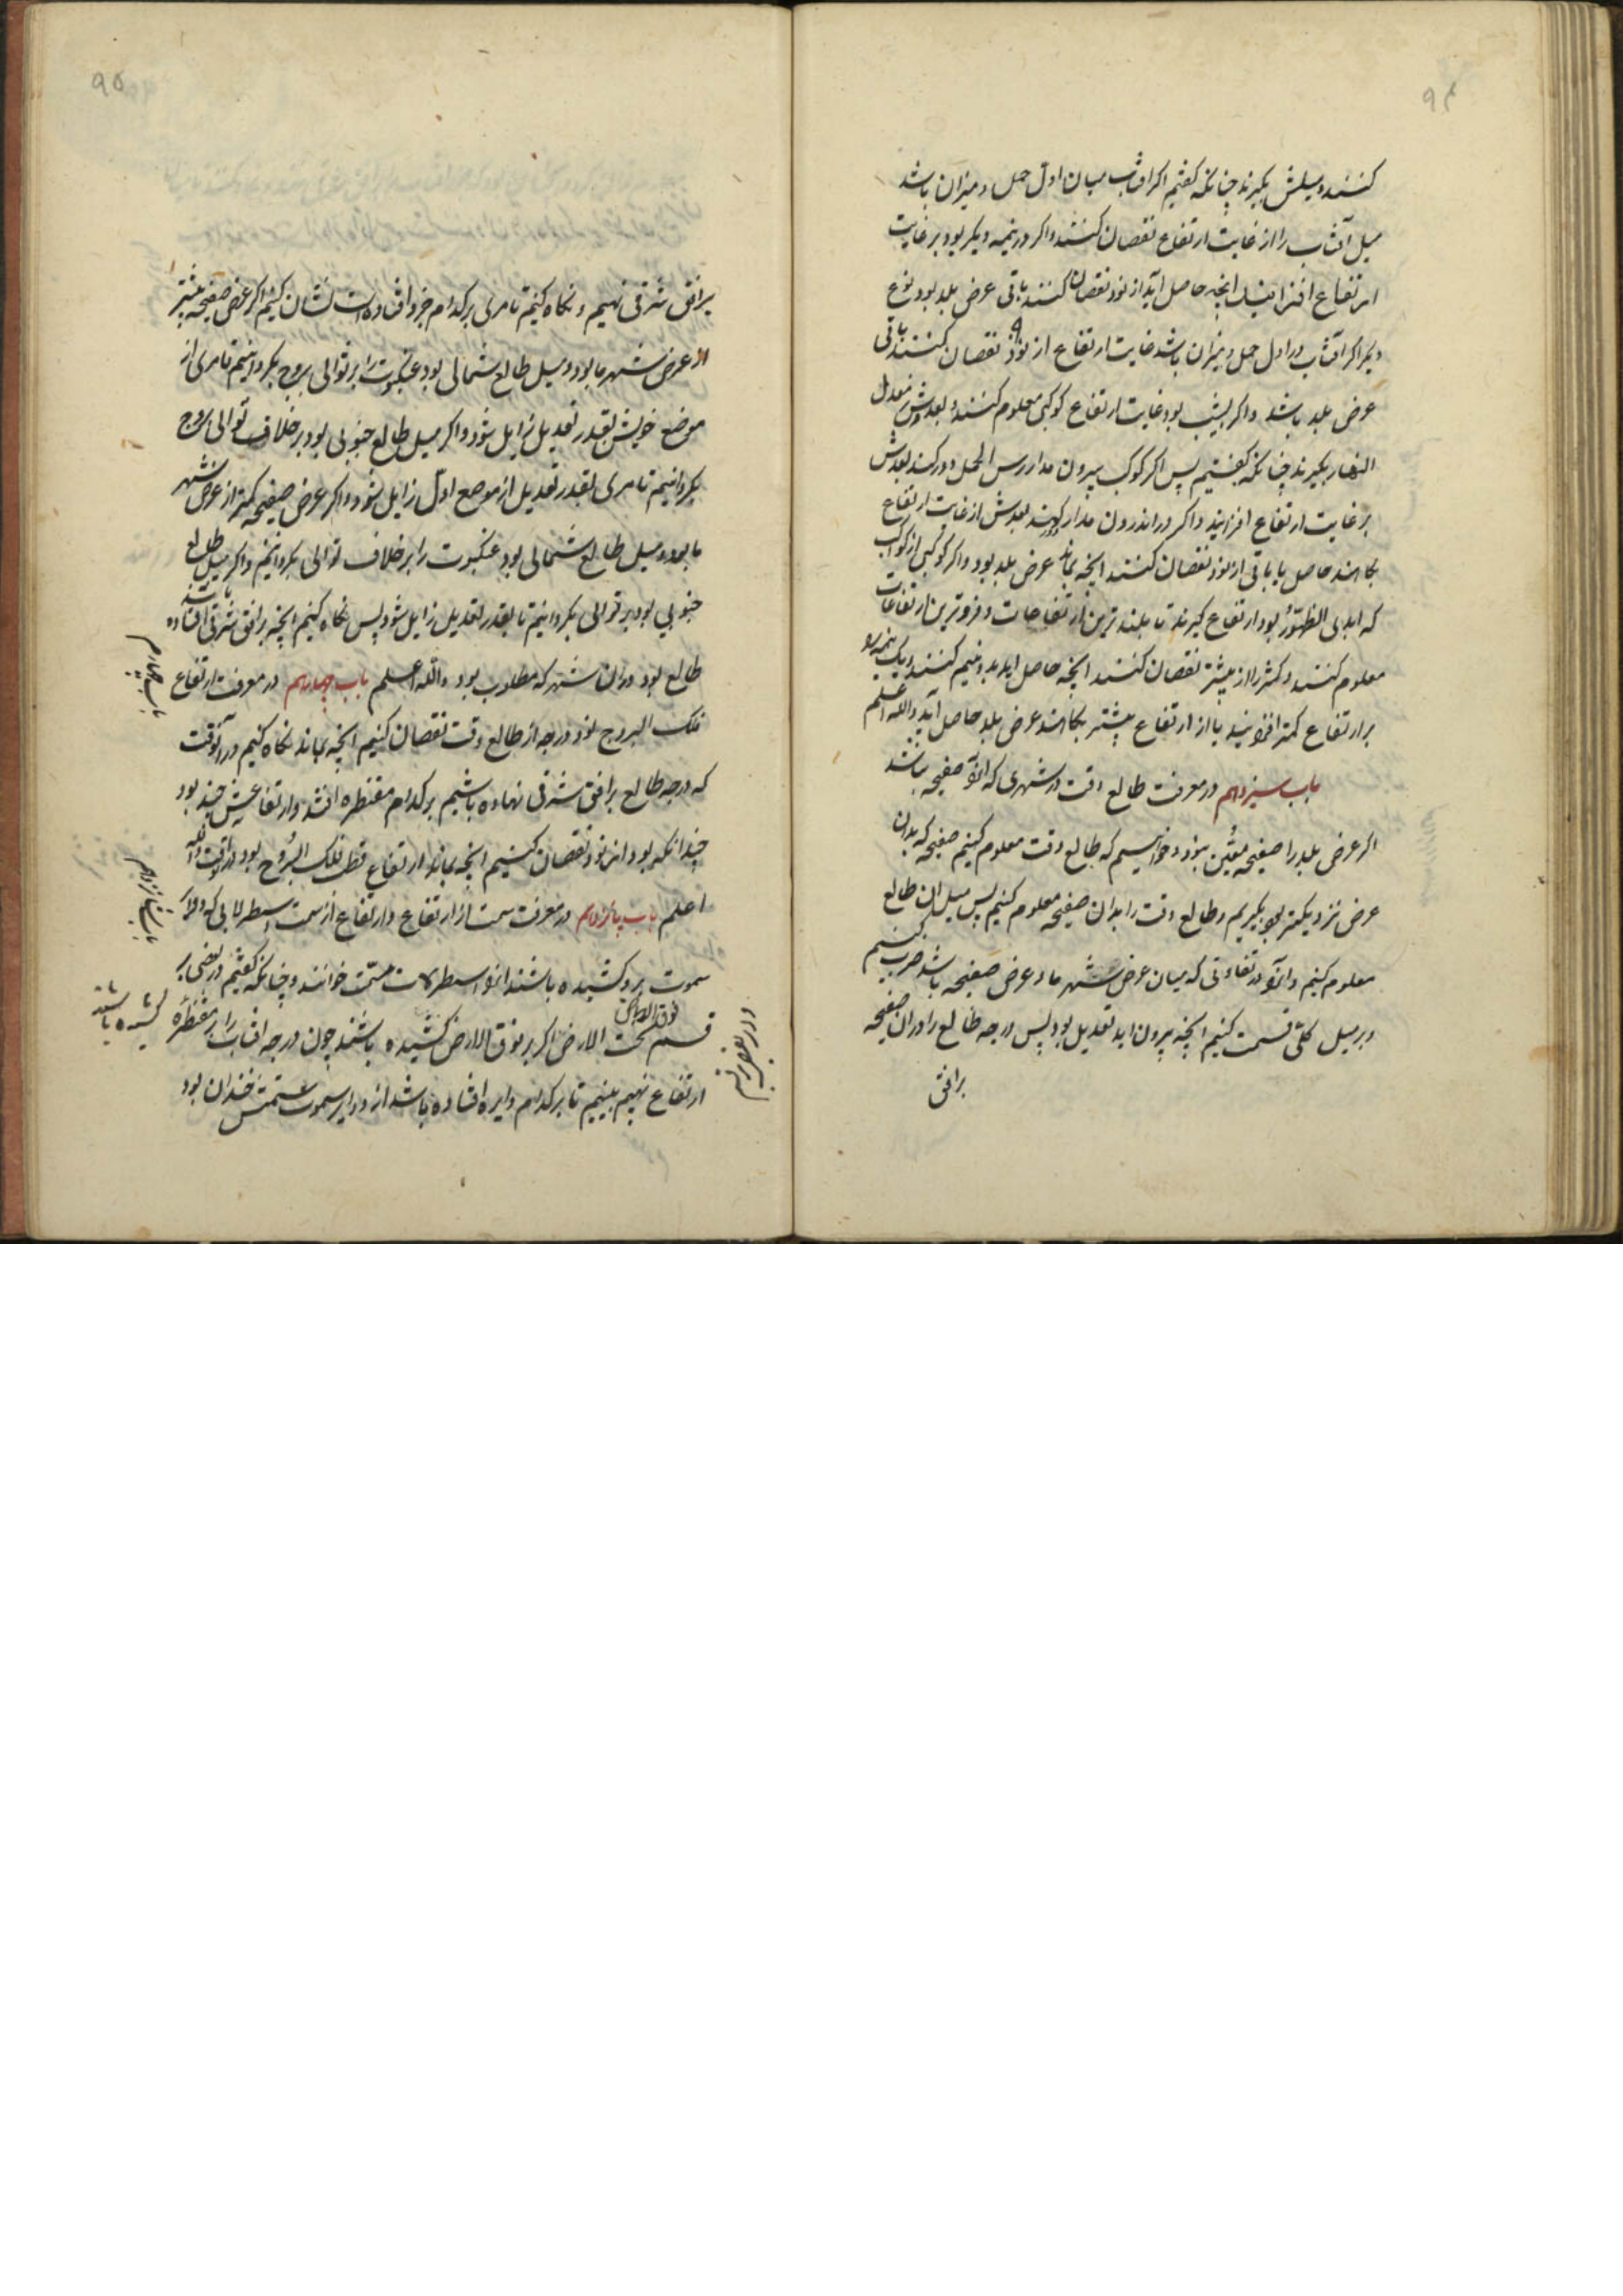 ۹۴
کنند و میلش بگیرند چنانکه گفتیم اگر افتاب میان اول حمل و میزان باشد
میل آفتاب را از غایت ارتفاع نقصان کنند و اگر در نیمه دیگر بود بر غایت
ارتفاع افزایند انچه حاصل آید از نود نقصان کنند باقی عرض بلد بود نوع
دیگر اگر آفتاب در اول حمل و میزان باشد غایت ارتفاع از نود نقصان کنند باقی
عرض بلد باشد و اگر بشب بود غایت ارتفاع کوکبی معلوم کنند و بعدش از معدل
النهار بگیرند چنانکه گفتیم پس اگر کوکب بیرون مدار رأس الحمل دور کند بعدش
بر غایت ارتفاع افزایند و اگر در اندرون مدار بعدش از غایت ارتفاع
بکاهند حاصل یا باقی از نود نقصان کنند انچه بماند عرض بلد بود و اگر کوکبی از کواکب
که ابدی الظهور بود ارتفاع گیرند تا بلندترین ارتفاعات و فروترین ارتفاعات
معلوم کنند و کمتر را از بیشتر نقصان کنند انچه حاصل اید بدو نیم کنند و یک نیمه بر
بر ارتفاع کمتر افزایند یا از ارتفاع بیشتر بکاهند عرض بلد حاصل آید والله اعلم
باب سیزدهم در معرفت طالع وقت در شهری که انرا صفیحه نباشد
اگر عرض بلد را صفیحه معین نبود و خواهیم که طالع وقت معلوم کنیم صفیحه که بدان
عرض نزدیکتر بود بگیریم و طالع وقت را بدان صفیحه معلوم کنیم پس میل ان طالع
معلوم کنیم و انرا در تفاوتی که میان عرض شهر ما و عرض صفیحه باشد ضرب کنیم
و بر میل کلی قسمت کنیم انچه بیرون اید تعدیل بود پس درجه طالع را در ان صفیحه
بر افق
۹۵
بر افق شرقی نهیم و نگاه کنیم تا مری بر کدام جزو افتاده است نشان کنیم اگر عرض صفیحه بیشتر
از عرض شهر ما بود و میل طالع شمالی بود عنکبوت را بر توالی بروج بگردانیم تا مری از
موضع خویش بقدر تعدیل زایل شود و اگر میل طالع جنوبی بود بر خلاف توالی بروج
بگردانیم تا مری بقدر تعدیل از موضع اول زایل شود و اگر عرض صفیحه کمتر از عرض شهر
ما بود و میل طالع شمالی بود عنکبوت را بر خلاف توالی بگردانیم و اگر میل طالع
جنوبی بود بر توالی بگردانیم تا بقدر تعدیل زایل شود پس نگاه کنیم انچه بر افق شرقی افتاده باشد
طالع بود در ان شهر که مطلوب بود والله اعلم باب چهاردهم در معرفت ارتفاع
باب چهاردهم
فلک البروج نود درجه از طالع وقت نقصان کنیم انچه بماند نگاه کنیم در آنوقت
که درجه طالع بر افق شرقی نهاده باشیم بر کدام مقنطره افتد و ارتفاعش چند بود
چندانکه بود از نود نقصان کنیم انچه بماند ارتفاع قطب فلک البروج بود در آنوقت والله
اعلم باب پانزدهم در معرفت سمت از ارتفاع و ارتفاع از سمت اسطرلابی که دوایر
باب پانزدهم
سموت برو کشیده باشند انرا اسطرلاب مسمت خوانند و چنانکه گفتیم در بعضی بر
فوق الارض کشیده باشند
و در بعضی بر
قسم تحت الارض اگر بر فوق الارض کشیده باشند چون درجه افتاب را بر مقنطره
ارتفاع نهیم ببینیم تا بر کدام دایره افتاده باشد از دوایر سموت سمتش چندان بود